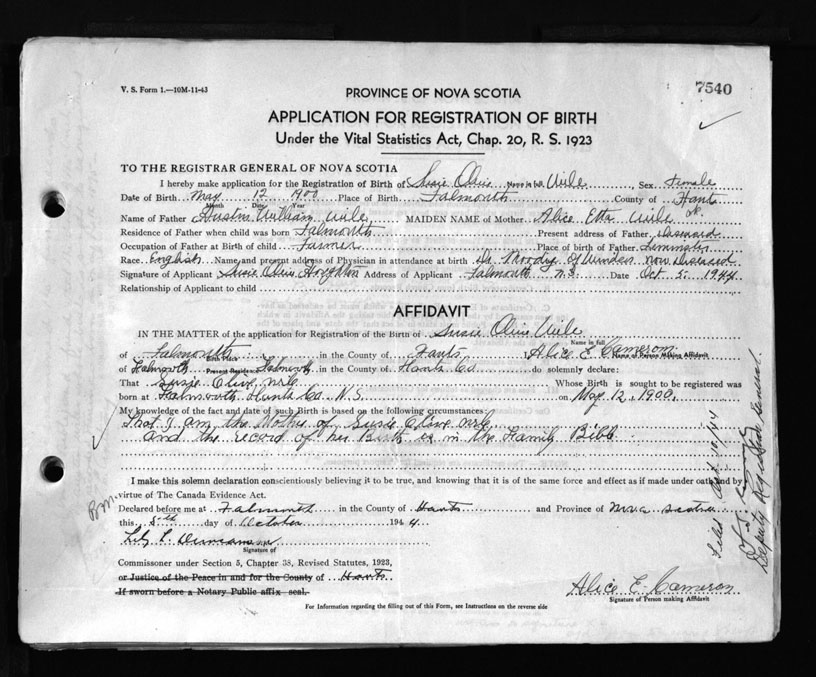 V. S. Form 1.—10M-11-43
PROVINCE OF NOVA SCOTIA
7540
APPLICATION FOR REGISTRATION OF BIRTH
Under the Vital Statistics Act, Chap. 20, R. S. 1923
TO THE REGISTRAR GENERAL OF NOVA SCOTIA
I hereby make application for the Registration of Birth of Susie Olive Name in full Wile Sex Female
Date of Birth May 12 1900 Place of Birth Falmouth County of Hants
Month Date Year
Name of Father Austin William Wile MAIDEN NAME of Mother Alice Etta Wile
Residence of Father when child was born Falmouth Present address of Father deceased
Occupation of Father at Birth of child Farmer Place of birth of Father
Race English Name and present address of Physician in attendance at birth Dr. Moody of Windsor now deceased
Signature of Applicant Susie Olive Houghton Address of Applicant Falmouth N.S. Date Oct 5 1944
Relationship of Applicant to child
AFFIDAVIT
IN THE MATTER of the application for Registration of the Birth of Susie Olive Wile
Name in full
of Falmouth in the County of Hants Alice E Cameron
Birth Place Name of Person Making Affidavit
of Falmouth Present Residence Falmouth in the County of Hants Co do solemnly declare:
That Susie Olive Wile Whose Birth is sought to be registered was
born at Falmouth Hants Co. N.S. on May 12, 1900.
My knowledge of the fact and date of such Birth is based on the following circumstances:
That I am the Mother of Susie Olive Wile
and the record of her Birth is in the Family Bible.
I make this solemn declaration conscientiously believing it to be true, and knowing that it is of the same force and effect as if made under oath and by
virtue of The Canada Evidence Act.
Declared before me at Falmouth in the County of Hants and Province of Nova Scotia
this 5th day of October 1944
L. Duncanson
Signature of
Commissioner under Section 5, Chapter 38, Revised Statutes, 1923,
or Justice of the Peace in and for the County of Hants
If sworn before a Notary Public affix seal.
Alice E. Cameron
Signature of Person making Affidavit
For Information regarding the filling out of this Form, see Instructions on the reverse side
Filed Oct 10/44
Deputy Registrar General